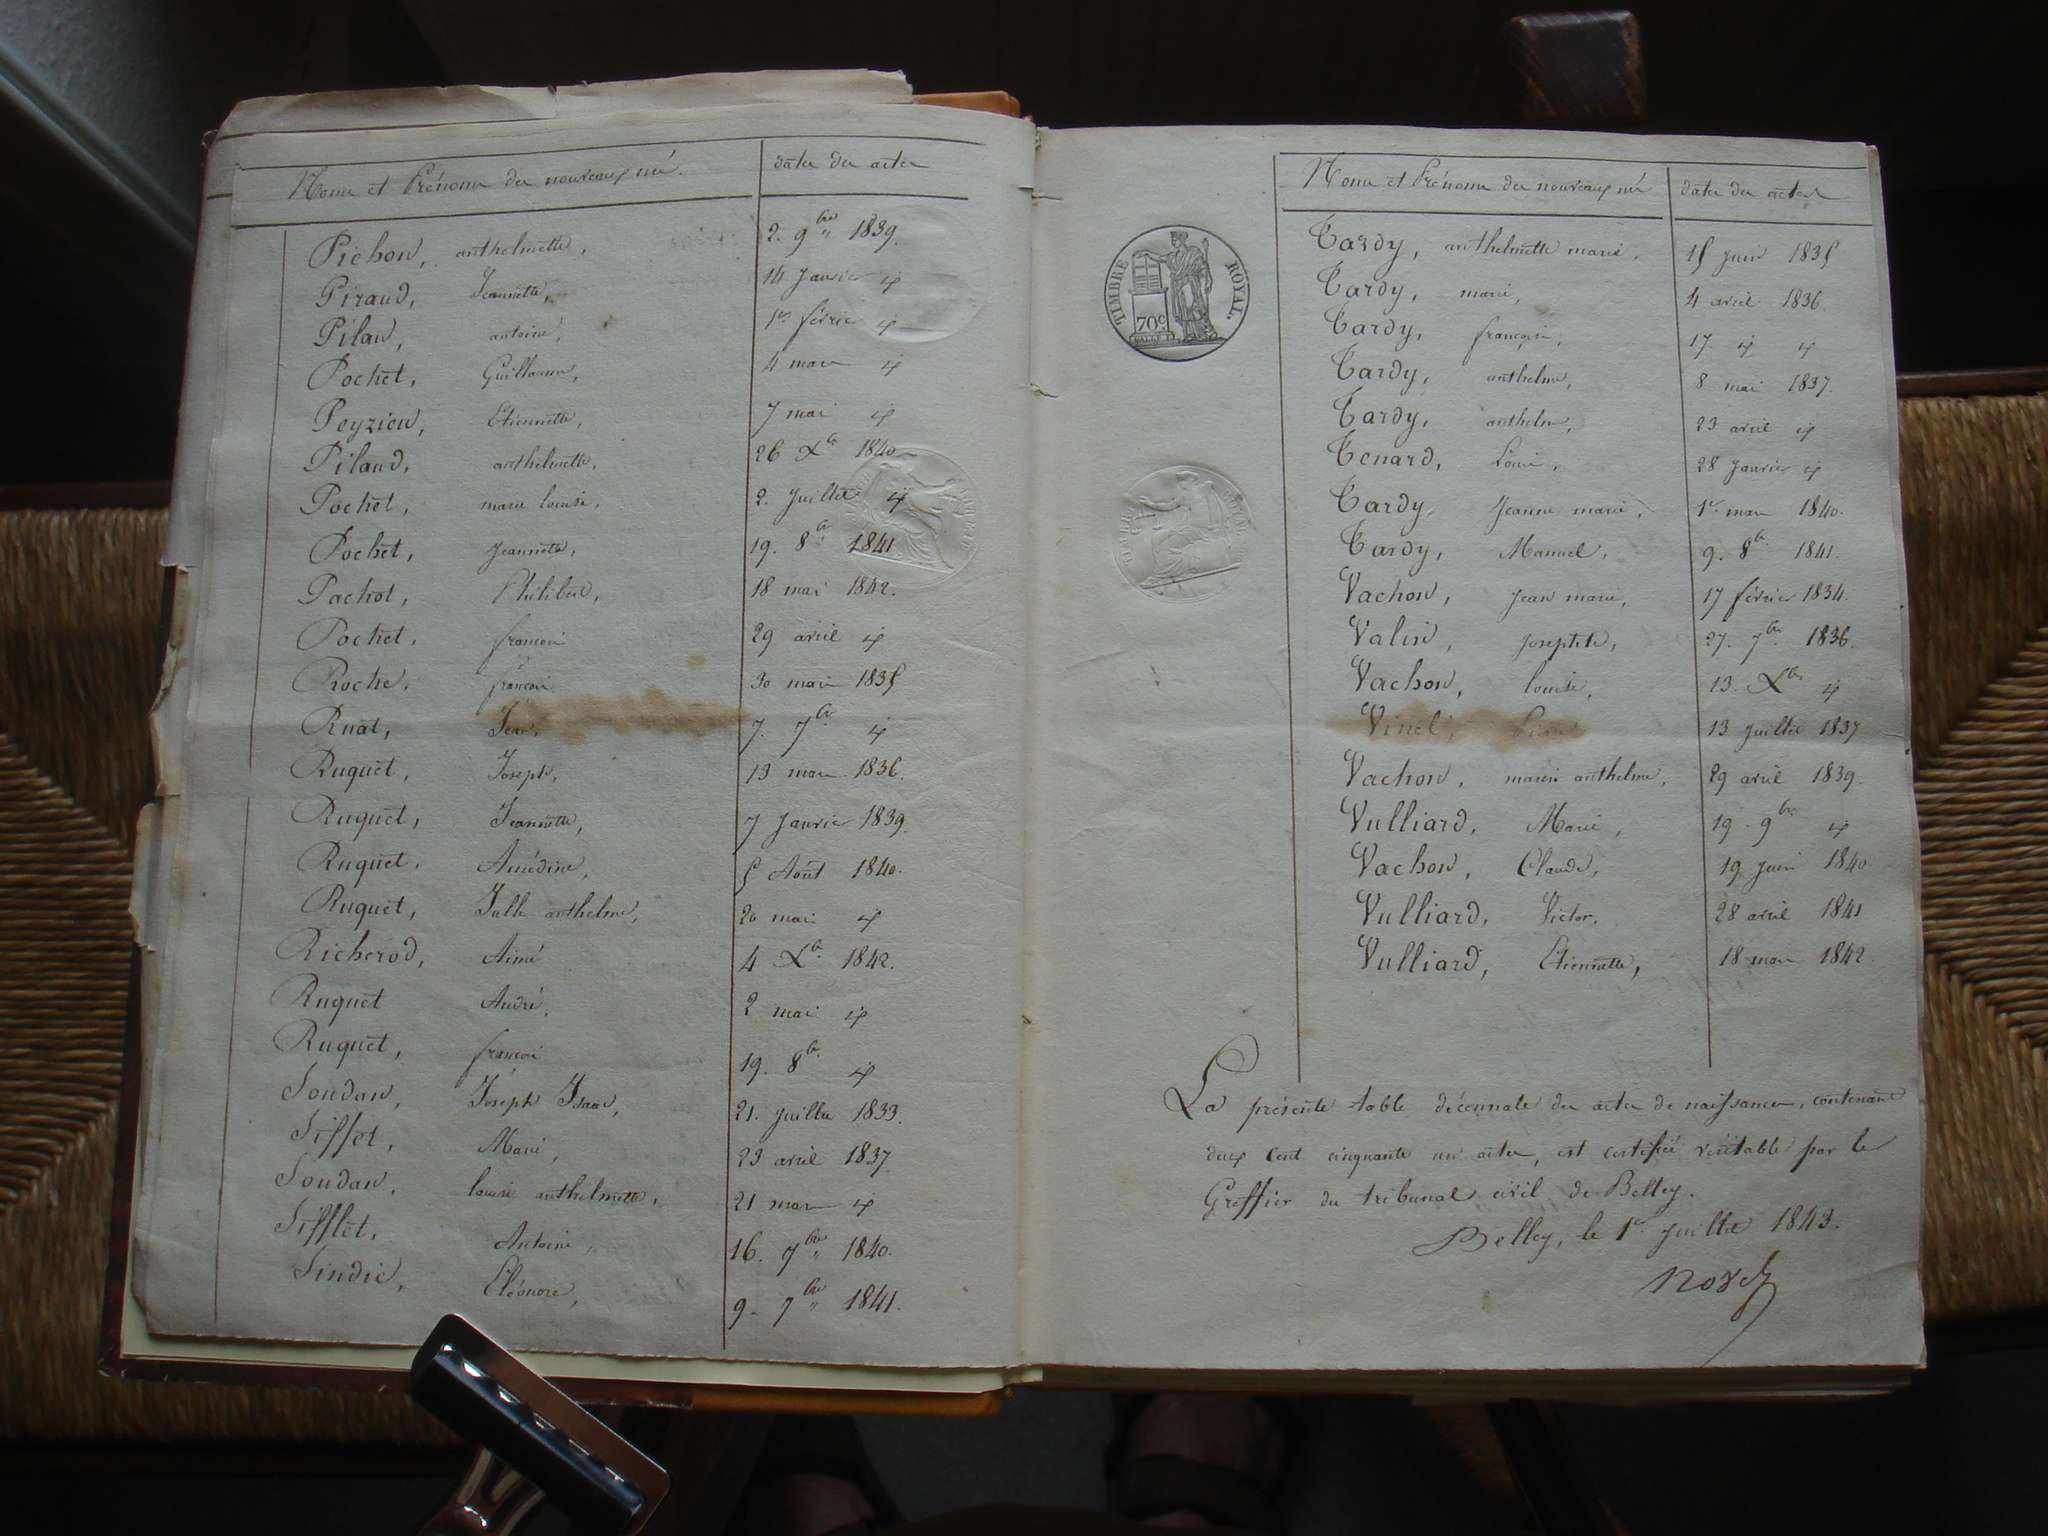 Noms et Prénoms des nouveaux nés. dates des actes
Pichon, anthelmette, 2. 9bre 1839.
Piraud, Jeannette, 14 Janvier id
Pilau, antoine, 1er février id
Pochet, Guillaume, 4 mars id
Peyzieu, Etiennette, 7 mai id
Pilaud, anthelmette, 26 Xbre 1840
Pochet, marie louise, 2. Juillet id
Pochet, Jeannette, 19. 8bre 1841
Pachot, Philibert, 18 mai 1842.
Pochet, françois 29 avril id
Roche, françois 30 mars 1835
Ruat, Jean, 7. 7bre id
Ruquet, Joseph, 13 mars 1836.
Ruquet, Jeannette, 7 Janvier 1839.
Ruquet, Amédine, 5 Août 1840.
Ruquet, Julle anthelme, 20 mai id
Richerod, Aimé 4 Xbre 1842.
Ruquet André, 2 mai id
Ruquet, françois 19. 8bre id
Soudan, Joseph Isaac, 21. Juillet 1833.
Siffet, Marie, 23 avril 1837
Soudan, louise anthelmette, 21 mars id
Sifflet, Antoine, 16. 7bre 1840.
Sindic, Eléonore, 9. 7bre 1841.
Noms et Prénoms des nouveaux nés dates des actes
TIMBRE ROYAL.
70c.
Tardy, anthelmette marie, 15 Juin 1835
Tardy, marie, 4 avril 1836.
Tardy, françoise, 17. id id
Tardy, anthelme, 8 mai 1837.
Tardy, anthelme, 23 avril id
Tenard, Louis, 28 Janvier id
Tardy, Jeanne marie, 1er mars 1840.
Tardy, Manuel, 9. 8bre 1841.
Vachon, Jean marie, 17 février 1834.
Valin, Josephte, 27. 7bre 1836.
Vachon, louise, 13. Xbre id
Vinel, Pierre 13 Juillet 1837
Vachon, marie anthelme, 29 avril 1839.
Vulliard, Marie, 19. 9bre id
Vachon, Claude, 19 Juin 1840.
Vulliard, Victor. 28 avril 1841
Vulliard, Etiennette, 18 mars 1842
La présente table décennale des actes de naissances, contenant
deux cent cinquante un actes, est certifiée véritable par le
Greffier du tribunal civil de Belley.
Belley, le 1er Juillet 1843.